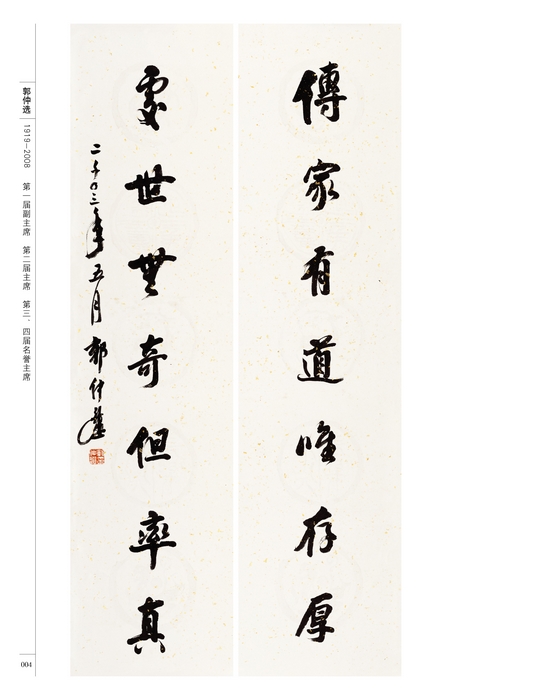 傳家有道唯存厚
處世無奇但率真
二千〇三年五月 郭仲選
郭仲选
1919—2008 第一届副主席 第二届主席 第三、四届名誉主席
004